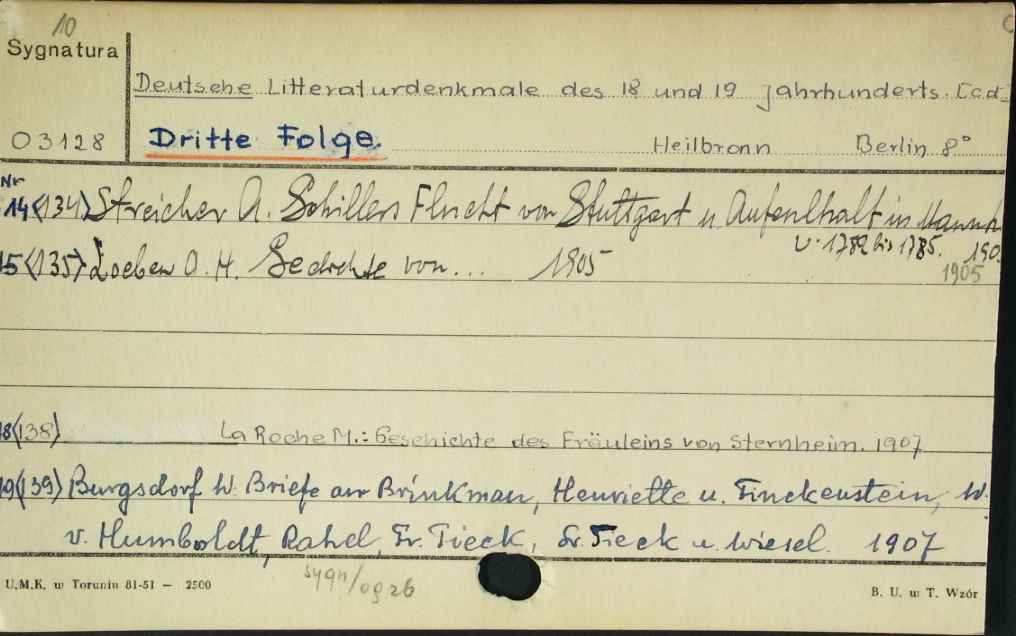 10
Sygnatura
Deutsche Litteraturdenkmale des 18 und 19 Jahrhunderts. [c.d.]
03128 Dritte Folge Heilbronn Berlin 8°
Nr
14(134) Streicher A. Schillers Flucht von Stuttgart u. Aufenlhalt in Mannh
v. 1782 bis 1785. 190
15(135) Loeben O. H. Gedichte von... 1905
1905
18(138) La Roche M.: Geschichte des Fräuleins von Sternheim. 1907
19(139) Burgsdorf W. Briefe an Brinkman, Henriette u. Finckenstein, W.
v. Humboldt, Rahel, Fr. Tieck, Fr. Tieck u. Wiesel. 1907
U.M.K. w Toruniu 81-51 — 2500
sygn/og zb
B. U. w T. Wzór